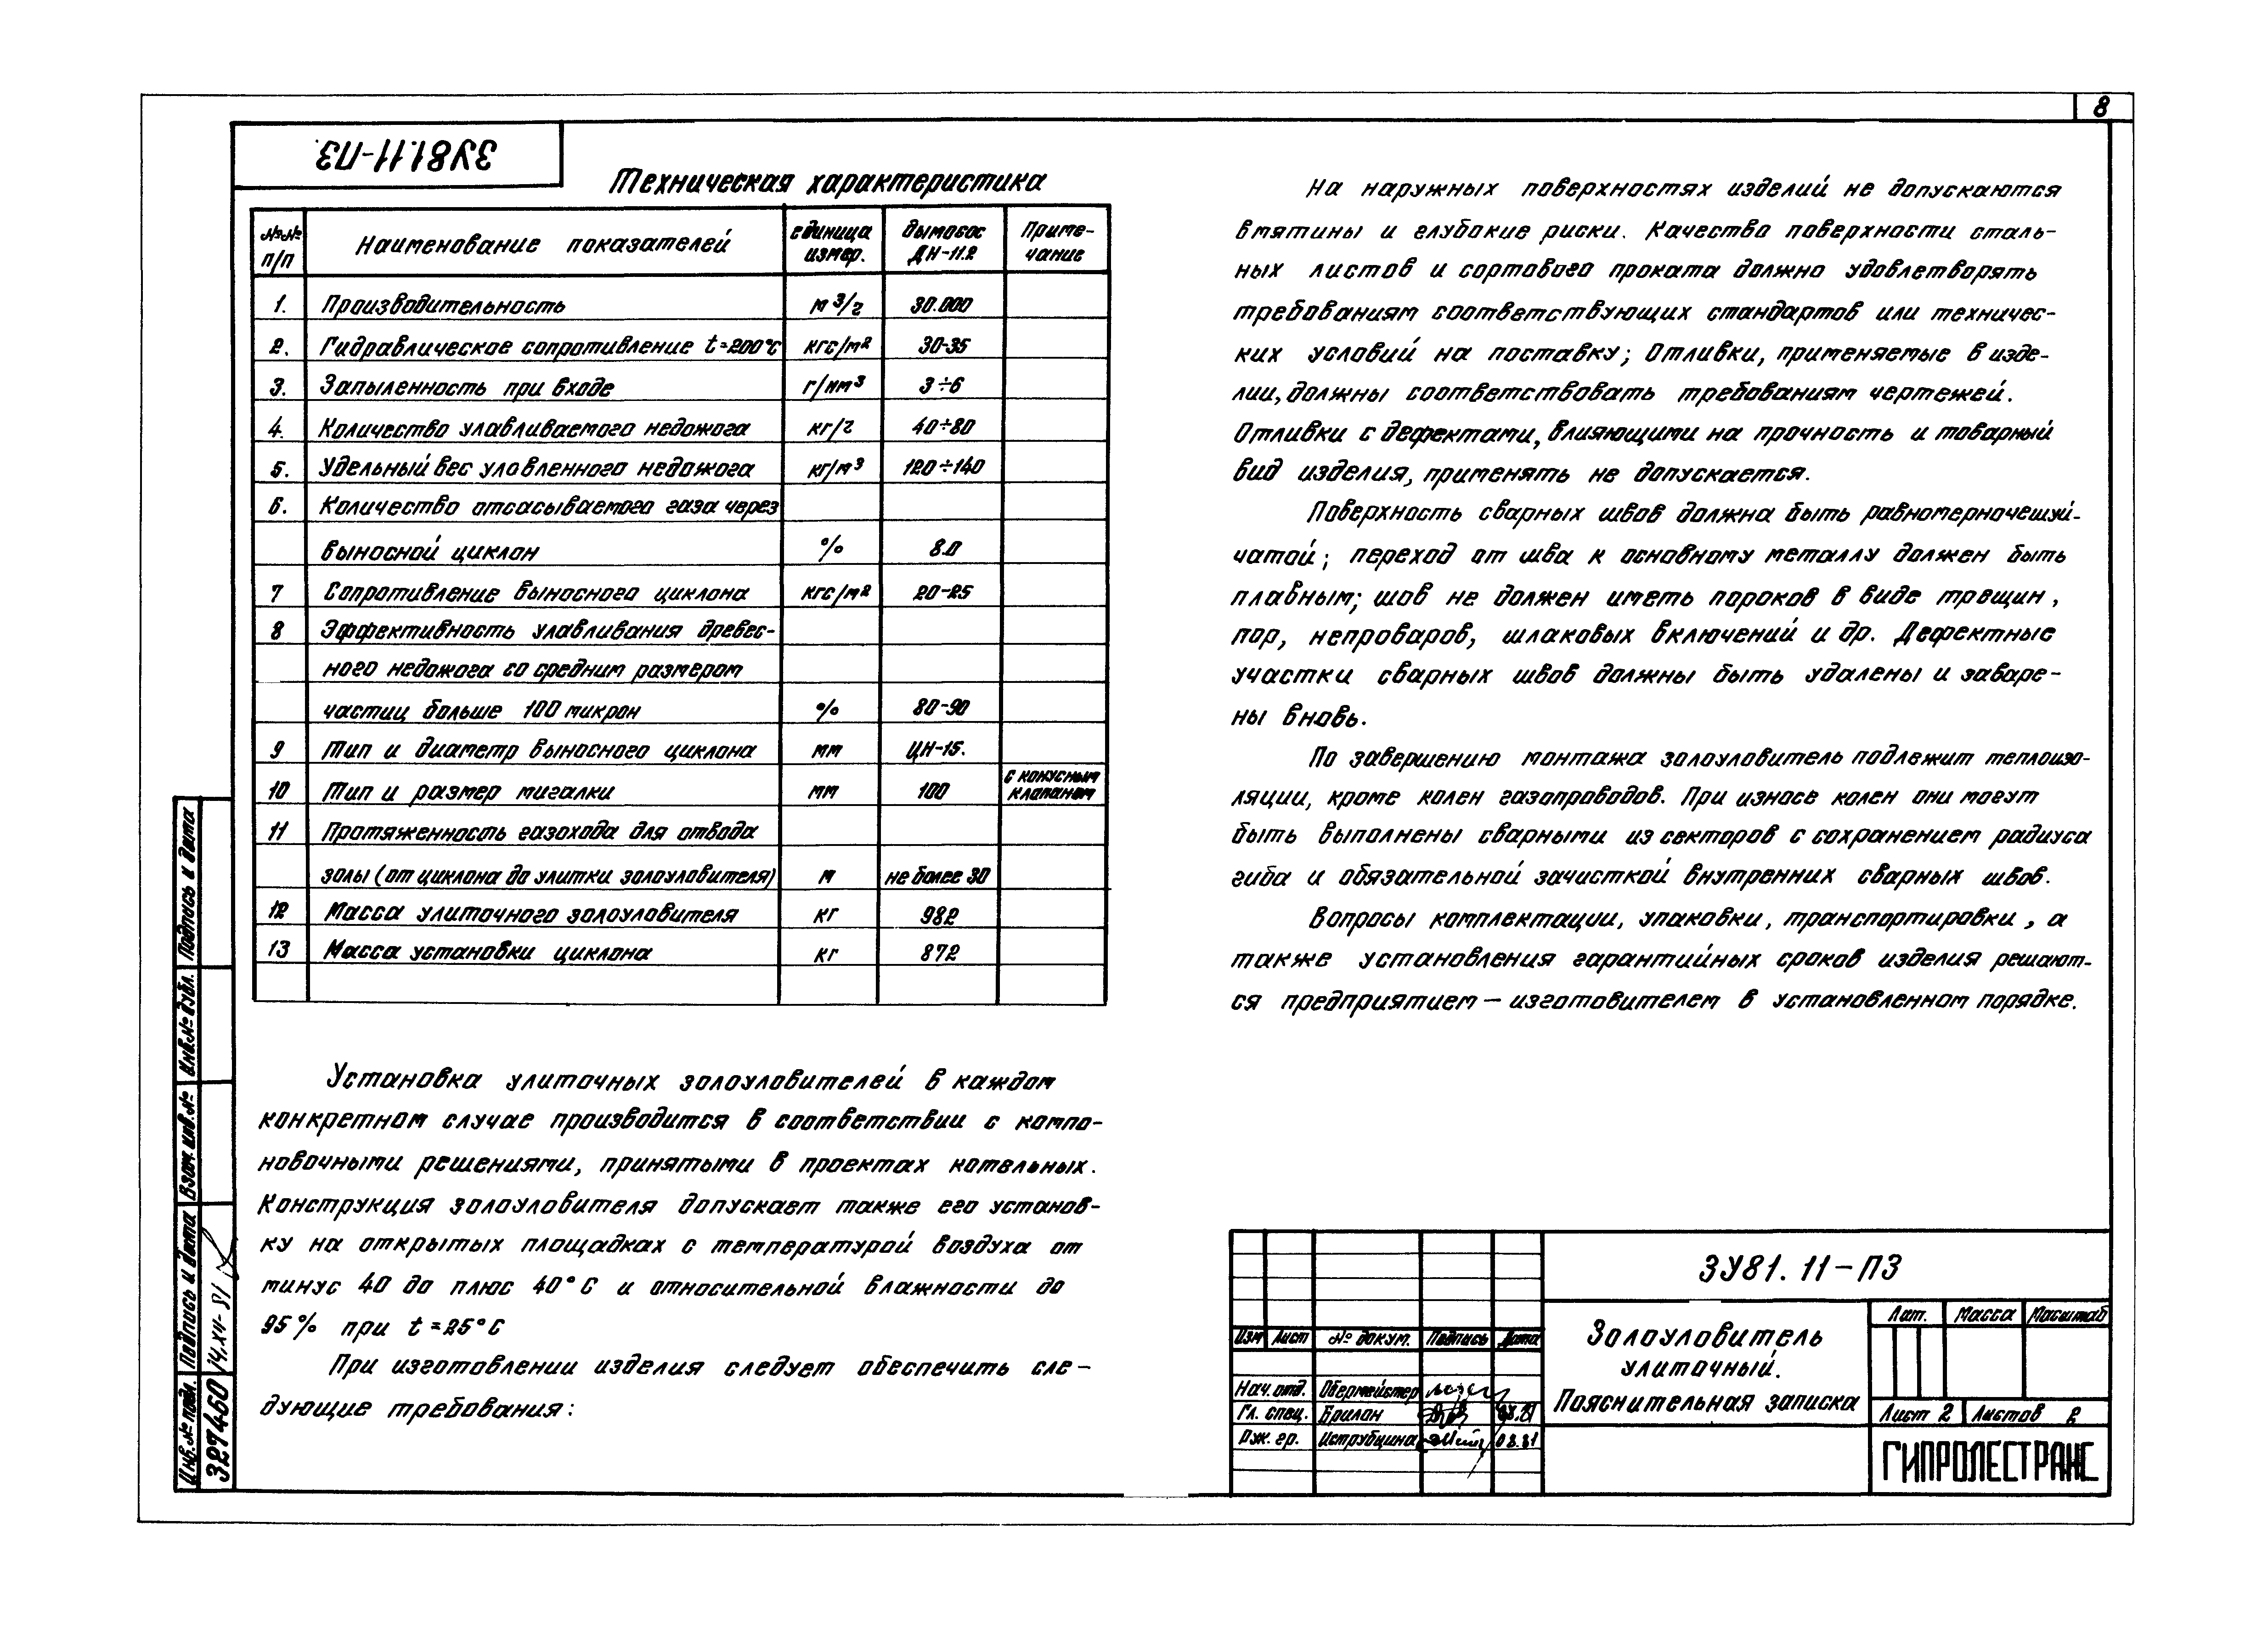 8
ЗУ81.11-ПЗ
Техническая характеристика
№№ п/п Наименование показателей единица измер. Дымосос ДН-11.2 Приме-чание
1. Производительность м³/г 30.000
2. Гидравлическое сопротивление t=200°С кгс/м² 30-35
3. Запыленность при входе г/нм³ 3÷6
4. Количество улавливаемого недожога кг/г 40÷80
5. Удельный вес уловленного недожога кг/м³ 120÷140
6. Количество отсасываемого газа через
выносной циклон % 8.0
7 Сопротивление выносного циклона кгс/м² 20-25
8 Эффективность улавливания древес-
ного недожога со средним размером
частиц больше 100 микрон % 80-90
9 Тип и диаметр выносного циклона мм ЦН-15.
10 Тип и размер мигалки мм 100 с конусным клапаном
11 Протяженность газохода для отвода
золы (от циклона до улитки золоуловителя) м не более 30
12 Масса улиточного золоуловителя кг 982
13 Масса установки циклона кг 872
Установка улиточных золоуловителей в каждом
конкретном случае производится в соответствии с компо-
новочными решениями, принятыми в проектах котельных.
Конструкция золоуловителя допускает также его установ-
ку на открытых площадках с температурой воздуха от
минус 40 до плюс 40°С и относительной влажности до
95% при t=25°С
При изготовлении изделия следует обеспечить сле-
дующие требования:
На наружных поверхностях изделий не допускаются
вмятины и глубокие риски. Качество поверхности сталь-
ных листов и сортового проката должно удовлетворять
требованиям соответствующих стандартов или техничес-
ких условий на поставку; Отливки, применяемые в изде-
лии, должны соответствовать требованиям чертежей.
Отливки с дефектами, влияющими на прочность и товарный
вид изделия, применять не допускается.
Поверхность сварных швов должна быть равномерночешуй-
чатой; переход от шва к основному металлу должен быть
плавным; шов не должен иметь пороков в виде трещин,
пор, непроваров, шлаковых включений и др. Дефектные
участки сварных швов должны быть удалены и заваре-
ны вновь.
По завершению монтажа золоуловитель подлежит теплоизо-
ляции, кроме колен газопроводов. При износе колен они могут
быть выполнены сварными из секторов с сохранением радиуса
гиба и обязательной зачисткой внутренних сварных швов.
Вопросы комплектации, упаковки, транспортировки, а
также установления гарантийных сроков изделия решают-
ся предприятием – изготовителем в установленном порядке.
ЗУ81.11-ПЗ
Изм Лист № докум. Подпись Дата
Нач. отд. Обермейстер
Гл. спец. Брилон 08.81
Рук. гр. Иструбцина 08.81
Золоуловитель
улиточный.
Пояснительная записка
Лит. Масса Масштаб
Лист 2 Листов 2
ГИПРОЛЕСТРАНС
Подпись и дата
Инв.№ дубл.
Взам. инв.№
Подпись и дата 14.XII-81
Инв.№ подл. 327460